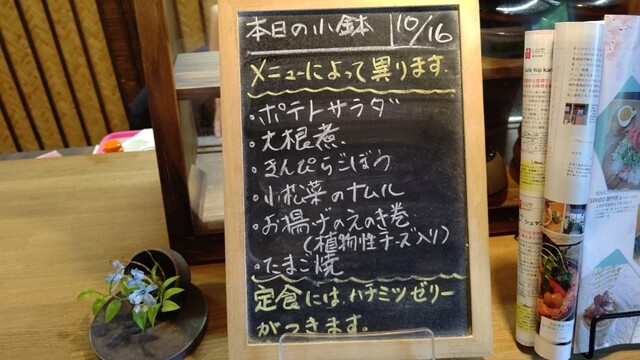 本日の小鉢 10/16
メニューによって異ります。
・ポテトサラダ
・大根煮
・きんぴらごぼう
・小松菜のナムル
・お揚げのえのき巻
(植物性チーズ入り)
・たまご焼
定食には、ハチミツゼリー
がつきます。